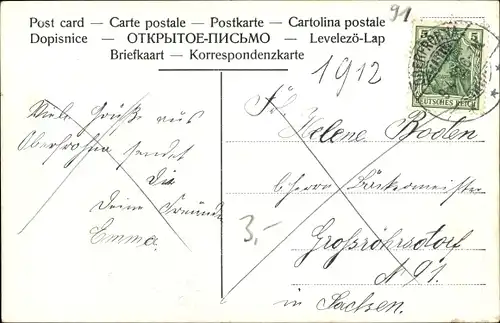 Post card — Carte postale — Postkarte — Cartolina postale
Dopisnice — ОТКРЫТОЕ-ПИСЬМО — Levelező-Lap
Briefkaart — Korrespondenzkarte
91
5 5
DEUTSCHES REICH
1912
Viele Grüße aus
Oberfrohna sendet
Dir
Deine Freundin
Emma.
Frl.
Helene Boden
b/Herrn Bäckermeister
Großröhrsdorf
N 91.
in Sachsen.
3,-